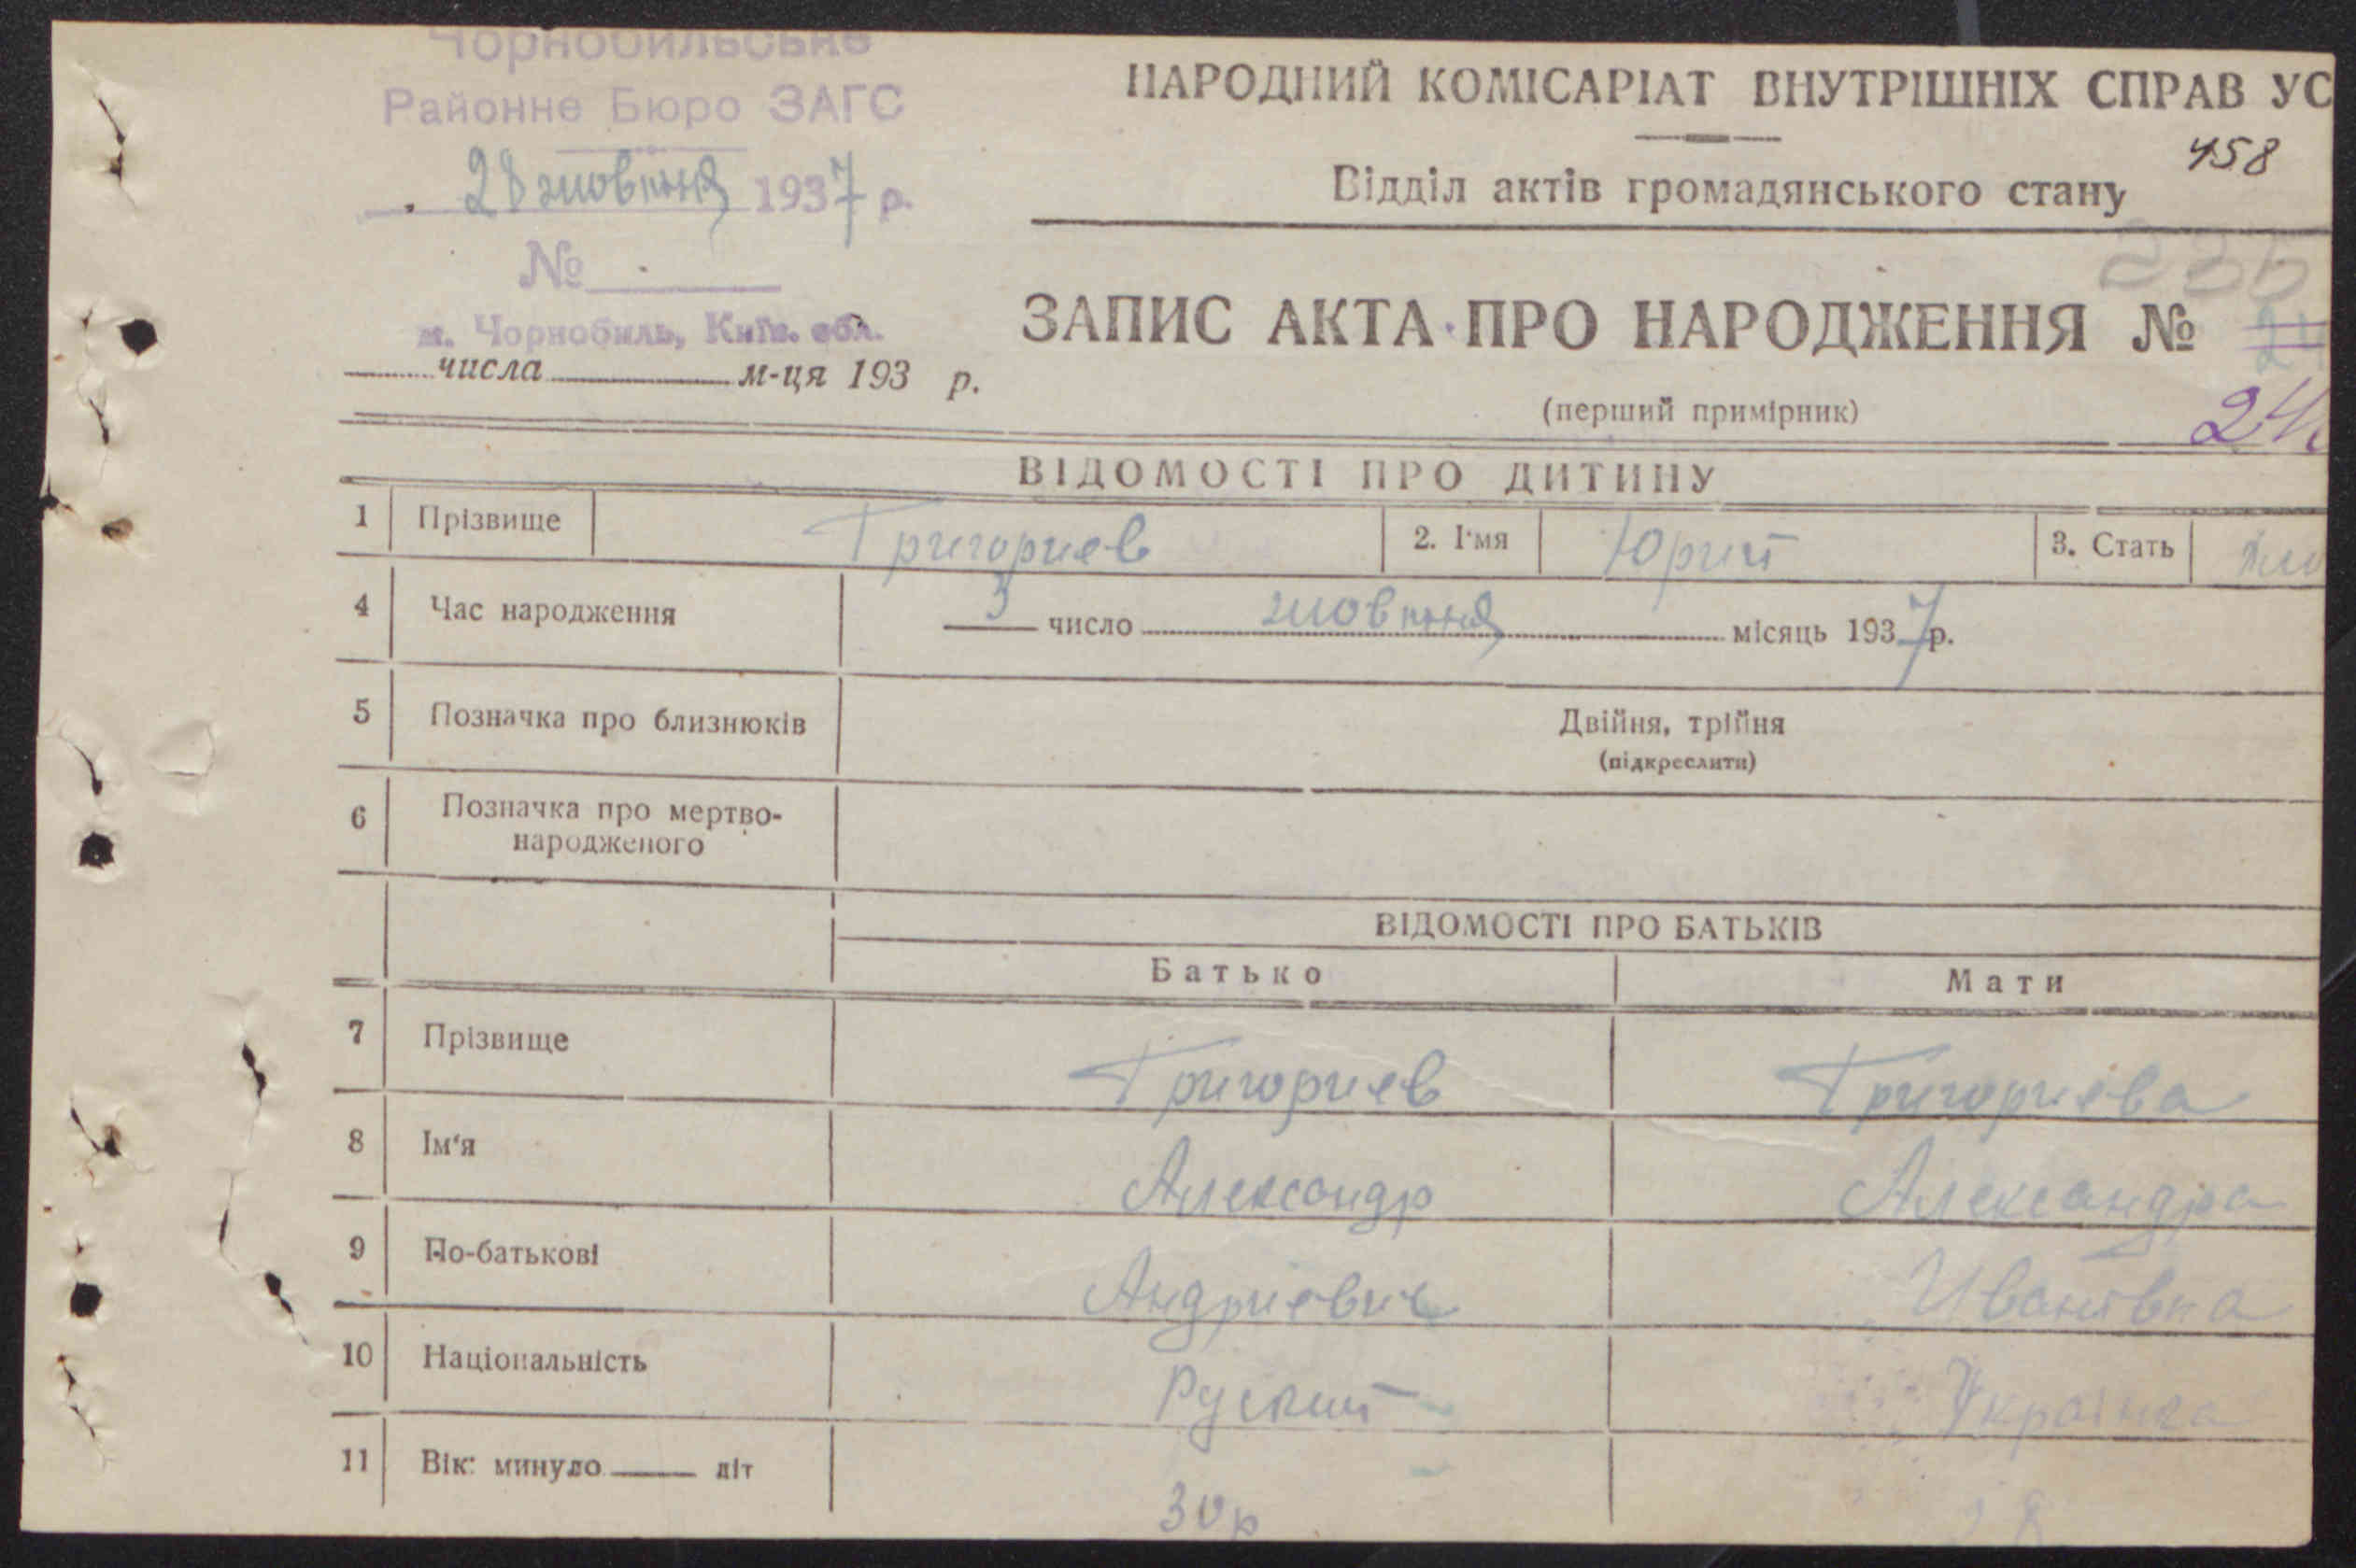 Чорнобильське
Районне Бюро ЗАГС
28 жовтня 1937 р.
№
м. Чорнобиль, Київ. обл.
числа м-ця 193 р.
НАРОДНИЙ КОМІСАРІАТ ВНУТРІШНІХ СПРАВ УС
458
Відділ актів громадянського стану
ЗАПИС АКТА ПРО НАРОДЖЕННЯ №
(перший примірник)
24
ВІДОМОСТІ ПРО ДИТИНУ
1 Прізвище Григориев 2. І'мя Юрий 3. Стать
4 Час народження 3 число жовтня місяць 1937 р.
5 Позначка про близнюків Двійня, трійня
(підкреслити)
6 Позначка про мертво-
народженого
ВІДОМОСТІ ПРО БАТЬКІВ
Батько Мати
7 Прізвище Григориев Григориева
8 Ім'я Александр Александра
9 По-батькові Андриевич Иванівна
10 Національність Руський Українка
11 Вік: минуло літ 30 р 28